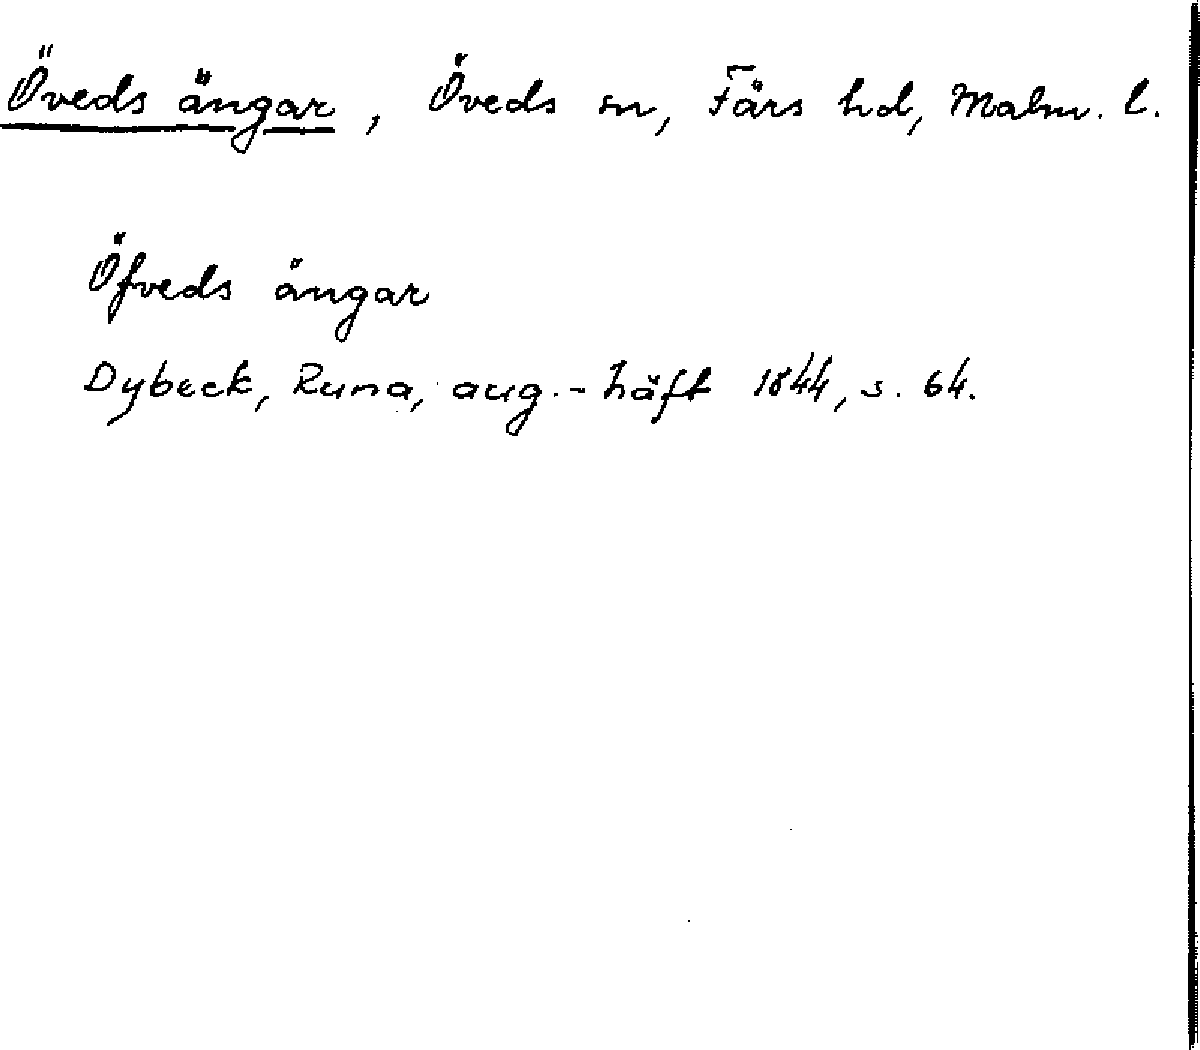 Öveds ängar, Öveds sn, Färs hd, Malm. l.
Öfveds ängar
Dybeck, Runa, aug.-häft 1844, s. 64.